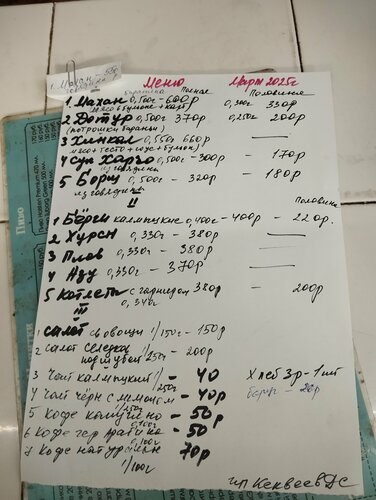 Меню Март 2025г
баранина Полная Половина
1. Махан 0,700г - 600р 0,300г 330р
мясо в бульоне + лапш
2 Дотур 0,500г 370р 0,250г 200р
(потрошки бараньи)
3 Хинкал 0,550г 660р —
мясо + тесто + соус + бульон
4 Суп Харчо 0,500г - 300р - 170р
из говядины
5 Борщ 0,500г - 320р - 180р
из говядины
II Половина
1 Бёрги калмыцкие 0,400г - 400р - 220р.
2 Хурсн 0,330г - 380р —
3 Плов 0,330г - 380р —
4 Азу 0,330г - 370р —
5 Котлеты с гарниром 380р - 200р
0,340г
III
1 салат св овощи 1/150г - 150р
2 салат селедка
под шубой 1/250г - 200р
3 Чай калмыцкий 1/250г - 40 Хлеб 3р - 1шт
4 Чай чёрн с лимоном - 40р 20р
1/250г
5 Кофе капучино - 50р
0,200г
6 Кофе три - 50
0,200г
7 Кофе натуральн 70р
1/100г
ИП Кекеев
Пиво